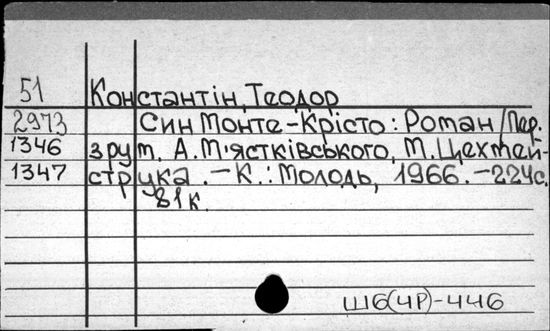 51 Константін, Теодор
2973 Син Монте-Крісто: Роман/Пер.
1346 з рум. А.М'ястківського, М.Цехмей-
1347 струка. – К.: Молодь, 1966. – 224с.
81к.
Ш6(4Р)-446